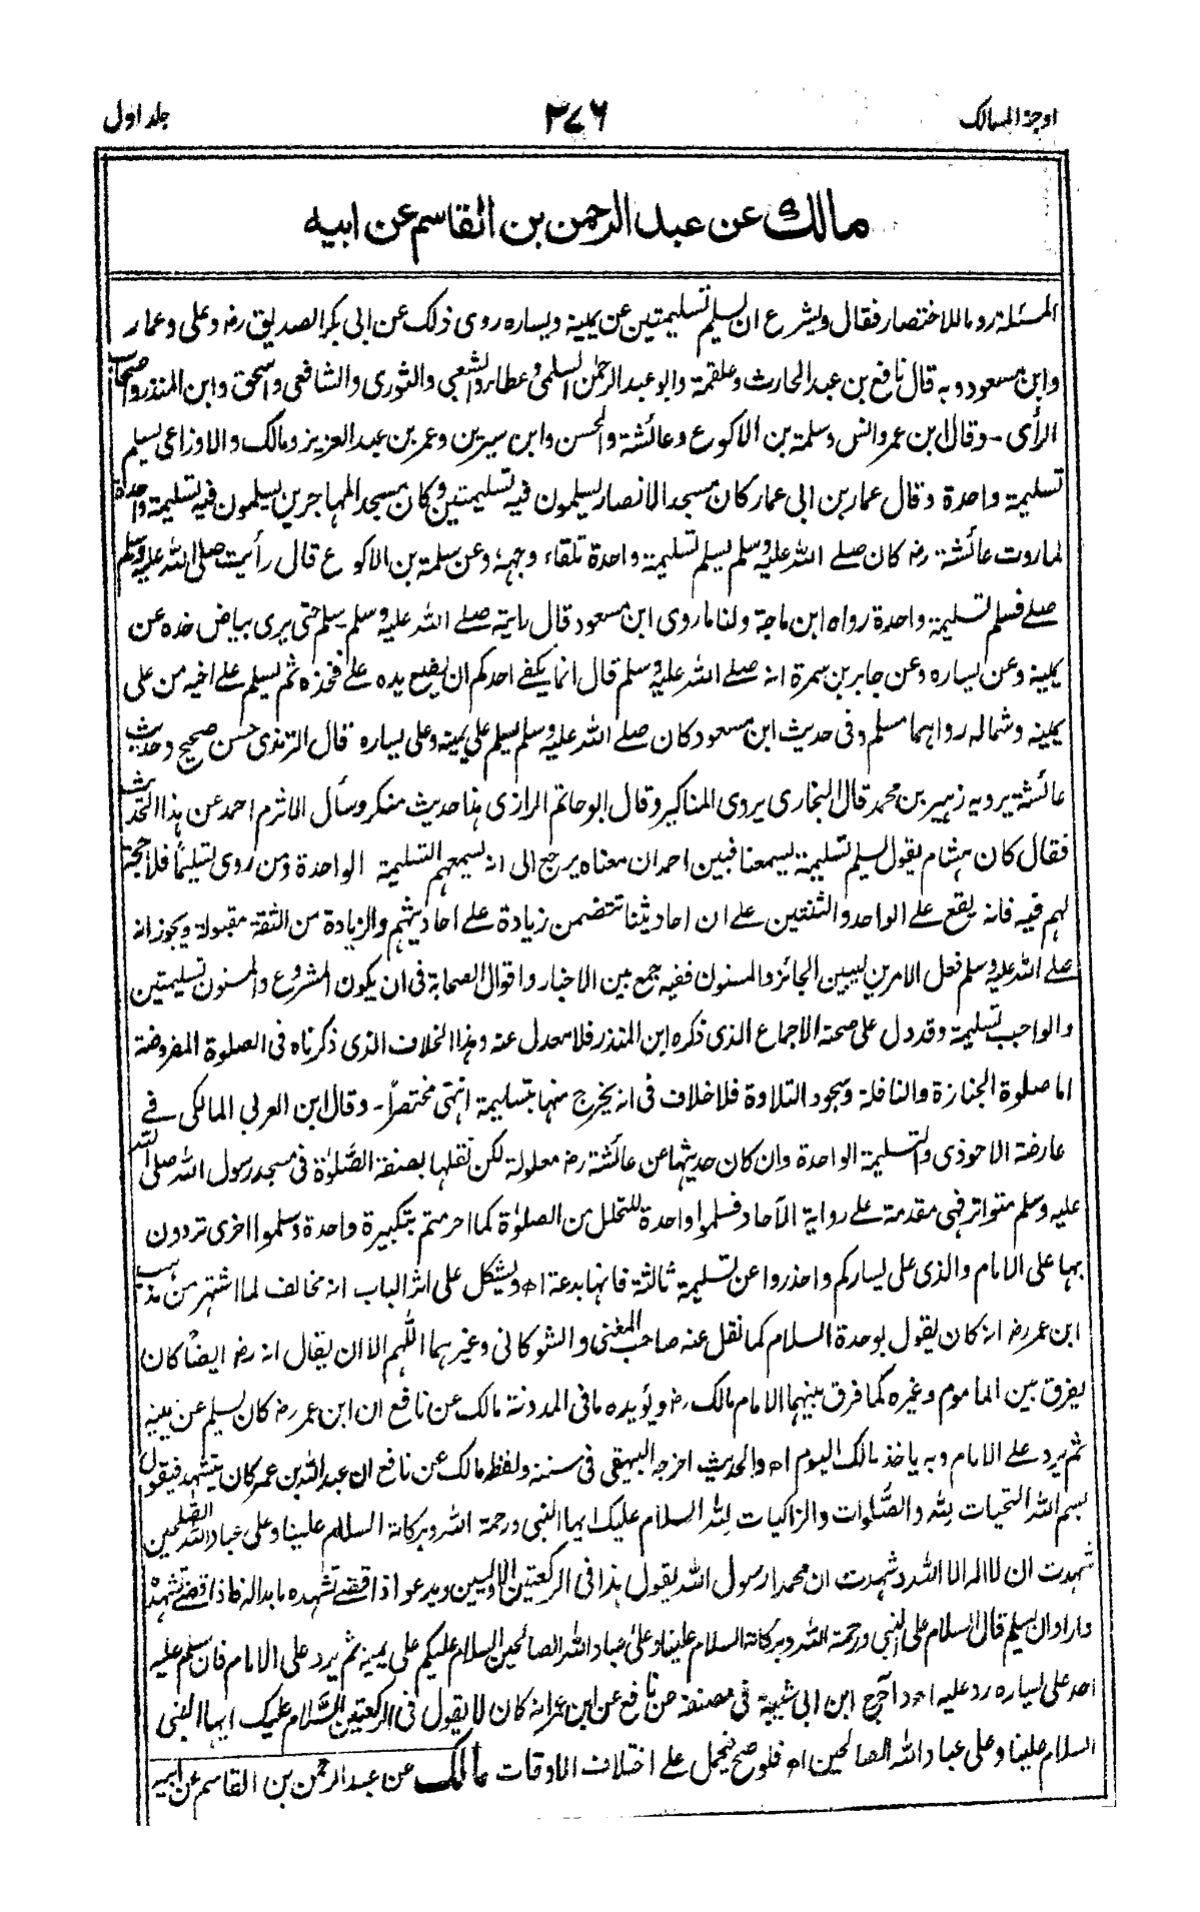 اوجز المسالك
۲۷۶
جلد اول
مالك عن عبد الرحمن بن القاسم عن ابيه
المسئلة روما للاختصار فقال ويشرع ان يسلم تسليمتين عن يمينه ويساره روى ذلك عن ابى بكر الصديق رضـ وعلى وعمار
وابن مسعود وبه قال نافع بن عبد الحارث وعلقمة وابو عبد الرحمٰن السلمى وعطاء والشعبى والثورى والشافعى واسحق وابن المنذر واصحاب
الرأى - وقال ابن عمر وانس وسلمة بن الاكوع وعائشة والحسن وابن سيرين وعمر بن عبد العزيز ومالك والاوزاعى يسلم
تسليمة واحدة وقال عمار بن ابى عمار كان مسجد الانصار يسلمون فيه تسليمتين وكان مسجد المهاجرين يسلمون فيه تسليمة واحدة
لما روت عائشة رضـ كان صلے الله عليه وسلم يسلم تسليمة واحدة تلقاء وجهه وعن سلمة بن الاكوع قال رأيت صلى الله عليه وسلم
صلے فسلم تسليمة واحدة رواه ابن ماجة ولنا ما روى ابن مسعود قال رايته صلے الله عليه وسلم يسلم حتى يرى بياض خده عن
يمينه وعن يساره وعن جابر بن سمرة انه صلے الله عليه وسلم قال انما يكفے احدكم ان يضع يده علے فخذه ثم يسلم علے اخيه من على
يمينه وشماله رواهما مسلم وفى حديث ابن مسعود كان صلے الله عليه وسلم يسلم على يمينه وعلى يساره قال الترمذى حسن صحيح وحديث
عائشة يرويه زهير بن محمد قال البخارى يروى المناكير وقال ابو حاتم الرازى هذا حديث منكر وسأل الاثرم احمد عن هذا الحديث
فقال كان هشام يقول يسلم تسليمة يسمعنا فبين احمد ان معناه يرجع الى انه يسمعهم التسليمة الواحدة ومن روى تسليمًا فلا حجة
لهم فيه فانه يقع علے الواحد والثنتين علے ان احاديثنا تتضمن زيادة علے احاديثهم والزيادة من الثقة مقبولة ويجوز انه
صلے الله عليه وسلم فعل الامرين ليبين الجائز والمسنون ففيه جمع بين الاخبار واقوال الصحابة فى ان يكون المشروع والمسنون تسليمتين
والواجب تسليمة وقد دل على صحة الاجماع الذى ذكره ابن المنذر فلا معدل عنه وهذا الخلاف الذى ذكرناه فى الصلوة المفروضة
اما صلوة الجنازة والنافلة وسجود التلاوة فلا خلاف فى انه يخرج منها بتسليمة انتهى مختصرًا - وقال ابن العربى المالكى فے
عارضة الاحوذى والتسليمة الواحدة وان كان حديثها عن عائشة رضـ معلولة لكن نقلها بصفة الصَّلوٰة فى مسجد رسول الله صلى الله
عليه وسلم متواتر فهى مقدمة علے رواية الآحاد فسلموا واحدة للتحلل من الصلوٰة كما احرمتم بتكبيرة واحدة وسلموا اخرى تردون
بها على الامام والذى على يساركم واحذروا عن تسليمة ثالثة فانها بدعة اھ ويشكل على اثر الباب انه مخالف لما اشتهر من مذهب
ابن عمر رضـ انه كان يقول بوحدة السلام كما نقل عنه صاحب المغنى والشوكانى وغيرهما اللّٰهم الا ان يقال انه رضـ ايضًا كان
يفرق بين الماموم وغيره كما فرق بينهما الامام مالك رضـ ويؤيده ما فى المدونة مالك عن نافع ان ابن عمر رضـ كان يسلم عن يمينه
ثم يرد علے الامام وبه ياخذ مالك اليوم اھ والحديث اخرجه البيهقى فى سننه ولفظه مالك عن نافع ان عبد الله بن عمر كان يتشهد فيقول
بسم الله التحيات لِلّٰه والصَّلوات والزاكيات لِلّٰه السلام عليك ايها النبى ورحمة الله وبركاته السلام علينا وعلى عباد الله الصلحين
شهدت ان لا اله الا الله وشهدت ان محمدا رسول الله يقول هذا فى الركعتين الاوليين ويدعو اذا قضے تشهده ما بدا له فاذا قضے تشهده
واراد ان يسلم قال السلام على النبى ورحمة الله وبركاته السلام علينا وعلى عباد الله الصالحين السلام عليكم على يمينه ثم يرد على الامام فان سلم عليه
احد على يساره رد عليه اھ واخرج ابن ابى شيبة فى مصنفه عن نافع عن ابن عمر انه كان لا يقول فى الركعتين السَّلام عليك ايها النبى
السلام علينا وعلى عباد الله الصالحين اھ فلو صح يحمل علے اختلاف الاوقات مالك عن عبد الرحمٰن بن القاسم عن ابيه